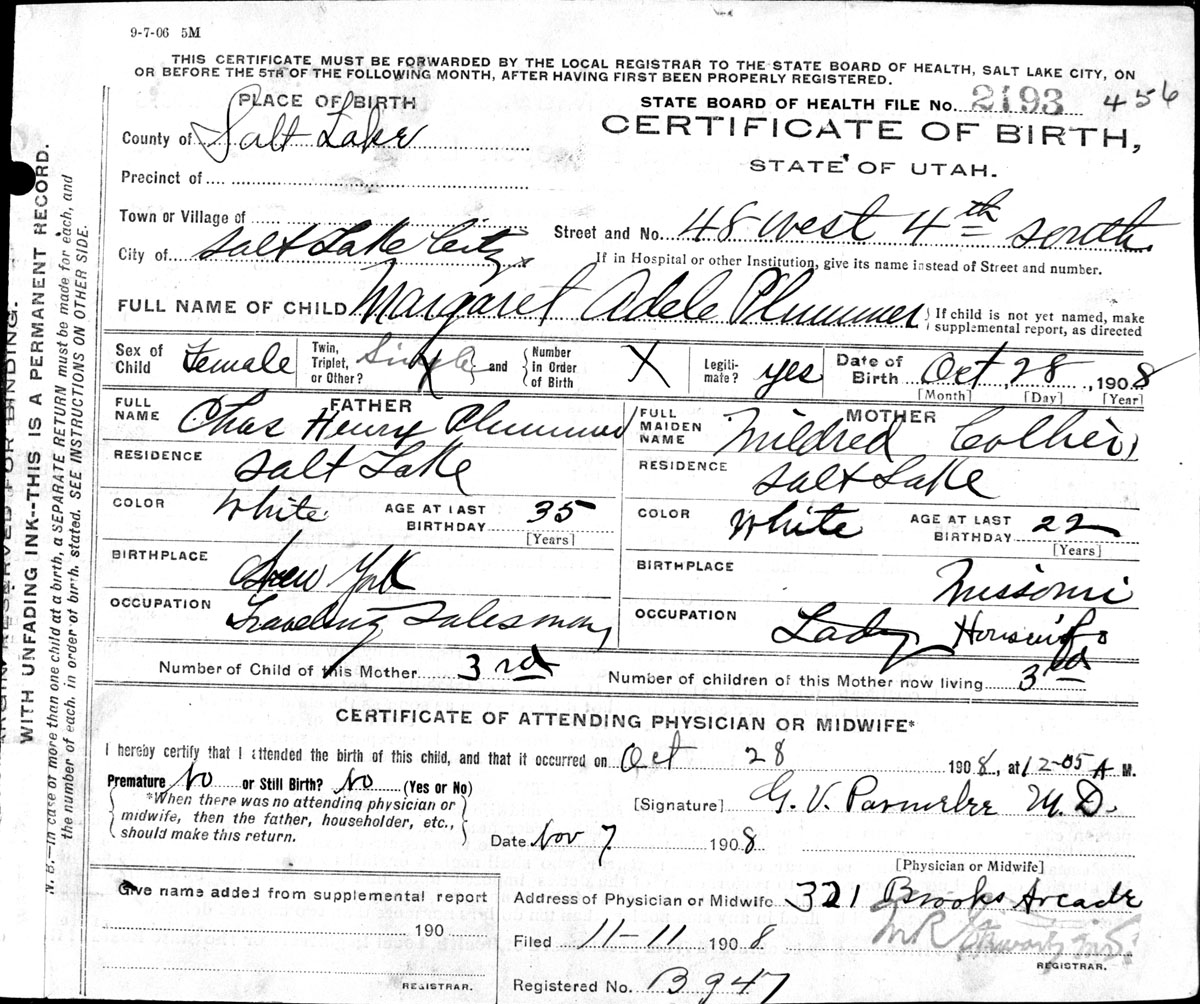 9-7-06 5M
THIS CERTIFICATE MUST BE FORWARDED BY THE LOCAL REGISTRAR TO THE STATE BOARD OF HEALTH, SALT LAKE CITY, ON
OR BEFORE THE 5TH OF THE FOLLOWING MONTH, AFTER HAVING FIRST BEEN PROPERLY REGISTERED.
PLACE OF BIRTH
STATE BOARD OF HEALTH FILE No. 2193 456
County of Salt Lake
CERTIFICATE OF BIRTH,
STATE OF UTAH.
Precinct of
Town or Village of
Street and No. 48 West 4th South
City of Salt Lake City
If in Hospital or other Institution, give its name instead of Street and number.
FULL NAME OF CHILD Margaret Adele Plummer
If child is not yet named, make
supplemental report, as directed
Sex of Child Female
Twin, Triplet, or Other? Single and Number In Order of Birth X
Legiti-mate? yes
Date of Birth Oct, 28, 1908
[Month] [Day] [Year]
FATHER
FULL NAME Chas Henry Plummer
MOTHER
FULL MAIDEN NAME Mildred Collier
RESIDENCE Salt Lake
RESIDENCE Salt Lake
COLOR White AGE AT LAST BIRTHDAY 35
[Years]
COLOR White AGE AT LAST BIRTHDAY 22
[Years]
BIRTHPLACE New York
BIRTHPLACE Missouri
OCCUPATION Traveling Salesman
OCCUPATION Lady Housewife
Number of Child of this Mother 3rd
Number of children of this Mother now living 3rd
CERTIFICATE OF ATTENDING PHYSICIAN OR MIDWIFE*
I hereby certify that I attended the birth of this child, and that it occurred on Oct 28 1908, at 12-05 A M.
Premature No or Still Birth? No (Yes or No)
*When there was no attending physician or
midwife, then the father, householder, etc.,
should make this return.
[Signature] G. V. Parmelee M.D.
Date Nov 7 1908
[Physician or Midwife]
Give name added from supplemental report
190
REGISTRAR.
Address of Physician or Midwife 321 Brooks Arcade
Filed 11-11 1908
REGISTRAR.
Registered No. B947
RESERVED FOR BINDING.
WITH UNFADING INK--THIS IS A PERMANENT RECORD.
N. B.—In case of more than one child at a birth, a SEPARATE RETURN must be made for each, and
the number of each, in order of birth, stated. SEE INSTRUCTIONS ON OTHER SIDE.